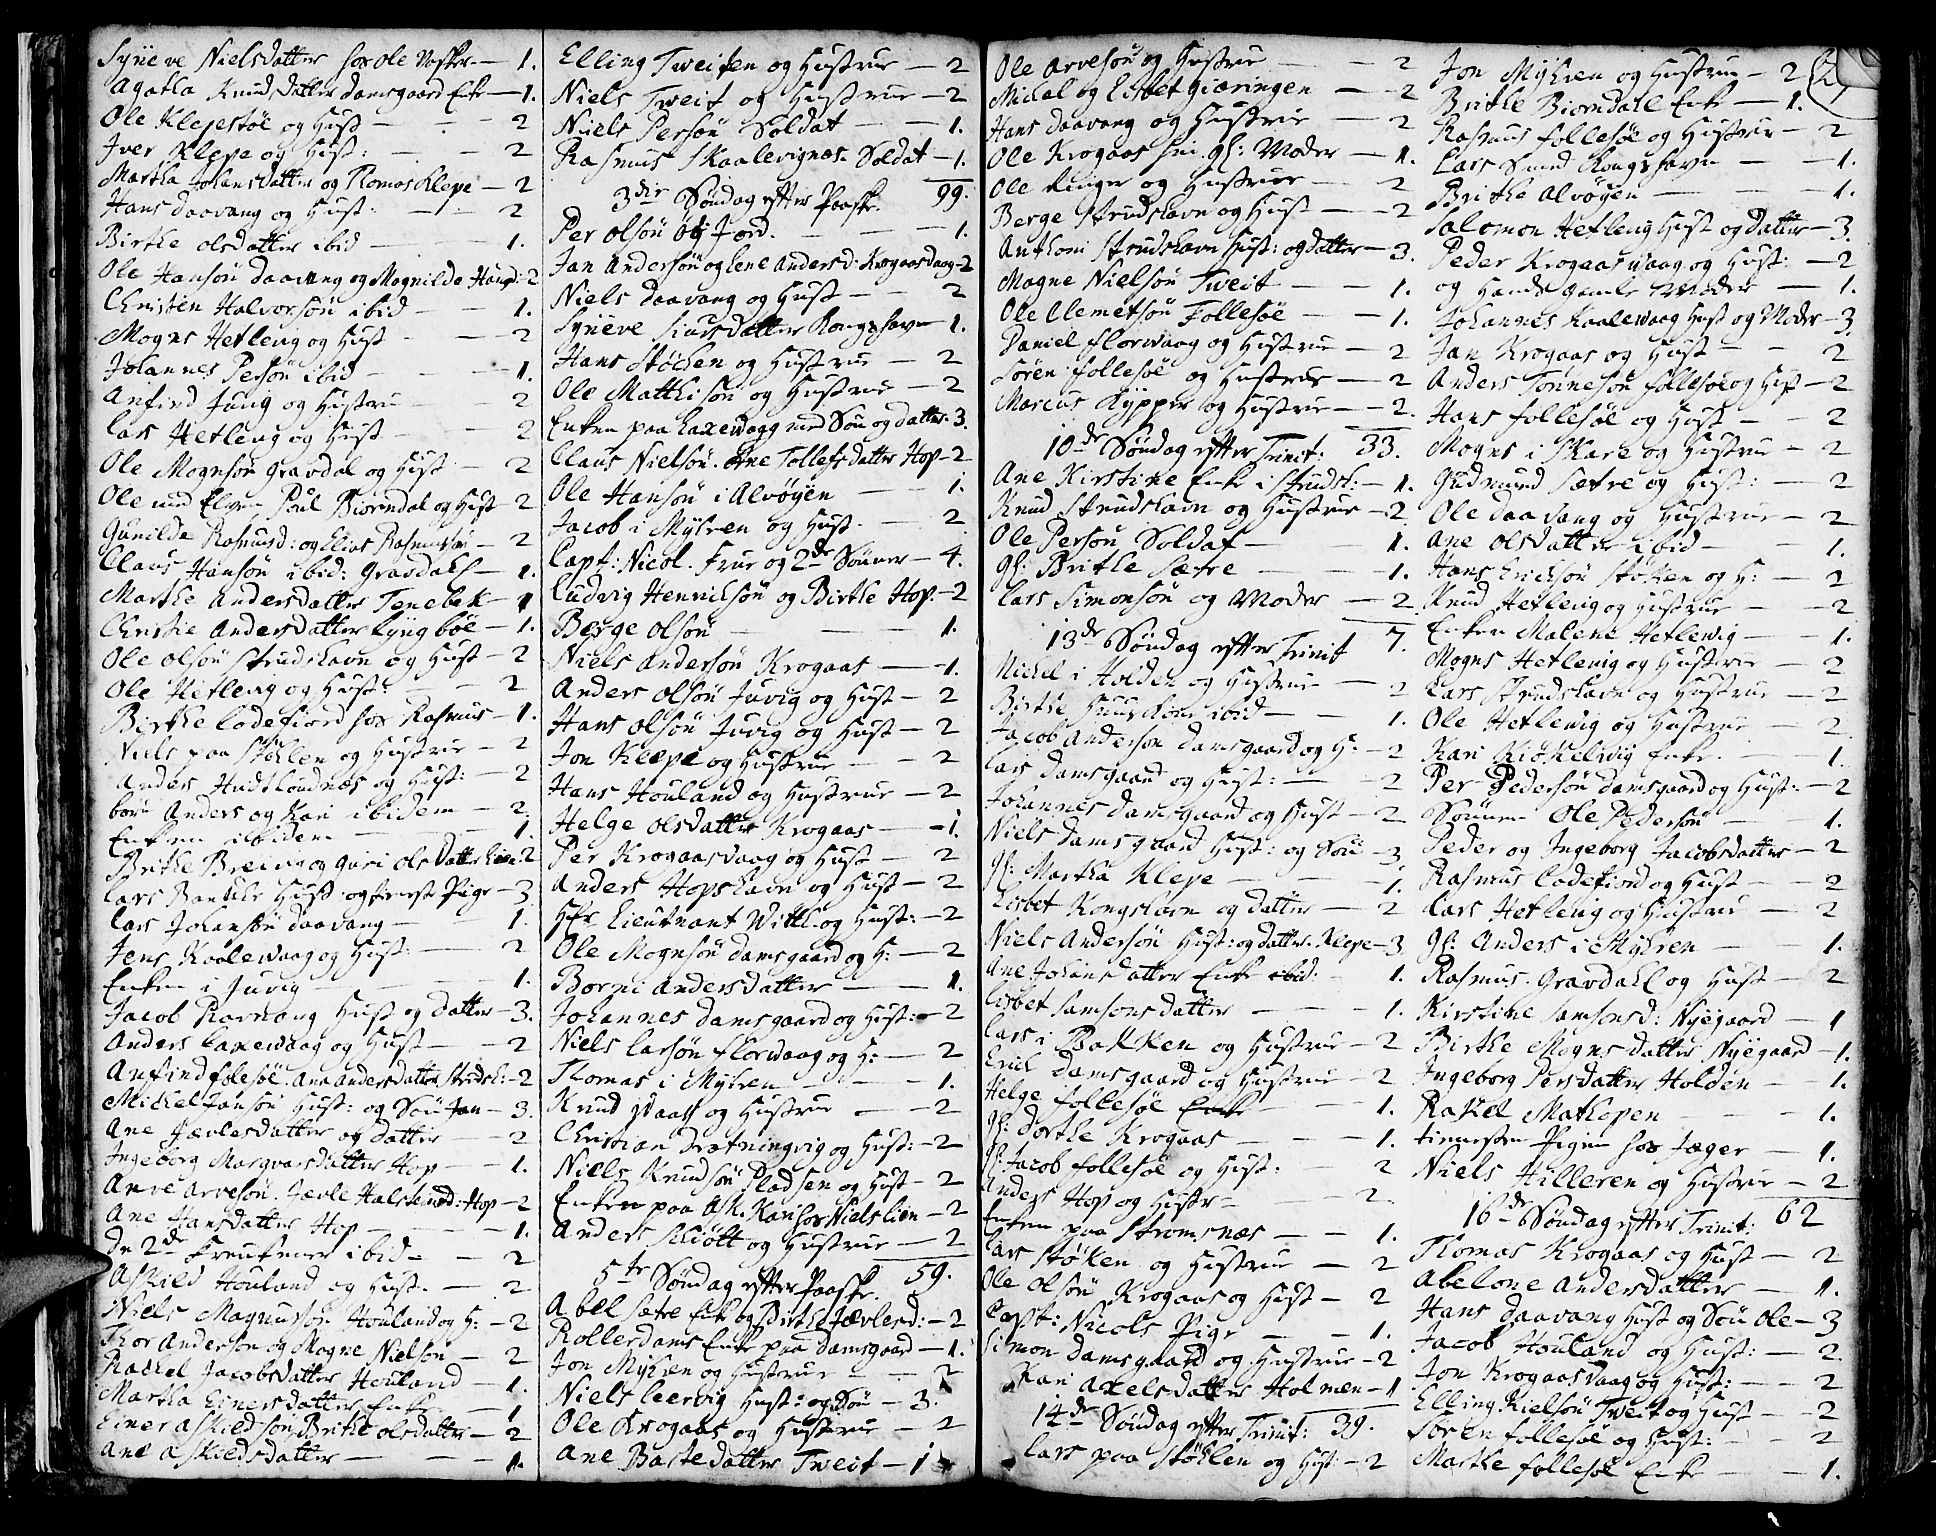 Syneve Nielsdatter hos Ole Vaskr — 1.
Agatha Knudsdatter Damsgaard Enke — 1.
Ole Klepestøl og Hust — 2
Iver Klepe og Hust: — 2
Martha Johansdatter og Thomas Klepe — 2
Hans Daavang og Hust: — 2
Birthe Olsdatter ibid — 1.
Ole Hansøn Daavang og Magnilde Hansd: 2
Christen Halvorsøn ibid — 1.
Mogns Hetlevig og Hust — 2
Johannes Persøn ibid — 1.
Anfind Juvig og Hustru — 2
Lars Hetlevig og Hust — 2
Ole Mognsøn Gravdal og Hust — 2
Ole Poul Biørndal og Hust — 2
Gunilde Rasmusd: og Elias Rasmussøn — 2
Claus Hansøn ibid: Gravdahl — 1.
Marthe Andersdatter Tenebek — 1
Christie Andersdatter Lyngbøe — 1.
Ole Olsøn Strudshavn og Hust — 2
Ole Hetlevig og Hust: — 2
Birthe Lodefiord hos Rasmus — 1.
Niels paa Støhlen og Hustrue — 2
Anders og Hust: — 2
Anders og Kari ibidem — 2
Enken ibidem — 1.
Birthe og Guri Olsdatter Lien: 2
Lars Hust og Pige — 3
Lars Johansøn Daavang — 1.
Jens Kaalewaag og Hust: — 2
Enken i Juvig — 1.
Jacob Hust og datter — 3.
Anders Laxewaag og Hust — 2
Anfind Folesøe. Ana Andersdatter Strudsh: — 2
Michel Jansøn Hust: og Søn Jan — 3.
Ane Jævlesdatter og datter — 2
Ingeborg Marqvarsdatter Hop — 1.
Arve Arvesøn. Jævle Halstensd: Hop — 2
Ane Hansdatter Hop — 1.
De 2de ibid — 2
Askild Houland og Hust. — 2
Niels Magnussøn Houland og H: — 2
Thor Andersøn og Magne Nielsøn — 2
Rachel Jacobsdatter Houland — 1.
Martha Einersdatter Enke — 1
Einer Askildsøn, Birthe Olsdatter — 2
Ane Askildsdatter — 1.
Elling Tweiten og Hustrue — 2
Niels Tweit og Hustrue — 2
Niels Persøn Soldat — 1.
Rasmus Skaalevignæs. Soldat — 1.
3die Søndag efter Paaske. 99.
Per Olsøn Jord. — 1.
Jan Andersøn og Lene Andersd: Krogaasvaag — 2
Niels Daavang og Hust — 2
Syneve Larsdatter Kongshavn — 1.
Hans Støhlen og Hustrue — 2
Ole Matthisøn og Hustrue — 2
Enken paa Laxewaag med Søn og datter. 3.
Claus Nielsøn. Ane Tollefsdatter Hop — 2
Ole Hansøn i Alvøyen — 1.
Jacob i Myhren og Hust. — 2
Capt: Nicol. Frue og 2de Sønner — 4.
Ludvig Henrichsøn og Birthe Hop. — 2
Børge Olsøn — 1.
Niels Andersøn Krogaas — 1.
Anders Olsøn Juvig og Hust — 2
Hans Olsøn Juvig og Hust — 2
Jon Klepe og Hustrue — 2
Hans Houland og Hustrue — 2
Helge Olsdatter Krogaas — 1.
Per Krogaasvaag og Hust — 2
Anders Hopshavn og Hust — 2
Hr Lieutnant Will. og Hust: — 2
Ole Mognsøn Damsgaard og H: — 2
Borni Andersdatter — 1.
Johannes Damsgaard og Hust: — 2
Niels Larsøn Florvaag og H: — 2
Thomas i Myhren — 1.
Knud Waag og Hustrue — 2
Christian Drætningvig og Hust: — 2
Niels Knudsøn Pladsen og Hust — 2
Enken paa Ask. Kari hos Niels Lien — 2
Anders Schiøtt og Hustrue — 2
5te Søndag efter Paaske. 59.
Abel Sætre Enke og Birthe Jævlesd: — 2
Rollerdams Enke paa Damsgaard — 1.
Jon Myhren og Hustrue — 2
Niels Leervig Hust: og Søn — 3.
Ole Krogaas og Hustrue — 2
Ane Bastedatter Tweit — 1
Ole Arvesøn og Hustrue — 2
Michel og Lisbet Giæringen — 2
Hans Daavang og Hustrue — 2
Ole Krogaas hei. gl: Moder — 1.
Ole Ringer og Hustrue — 2
Berge Strudshavn og Hust — 2
Anthoni Strudshavn Hust: og datter — 3.
Magne Nielsøn Tweit — 1.
Ole Clemetsøn Follesøe — 1.
Daniel Florwaag og Hustrue — 2
Søren i Follesøe og Hustrue — 2
Marcus Kypper og Hustrue — 2.
10de Søndag efter Trinit: 33.
Ane Kirstine Enke i Strudsh: — 1.
Knud Strudshavn og Hustrue — 2
Ole Persøn Soldat — 1.
gl: Birthe Sætre — 1.
Lars Simonsøn og Moder — 2
13de Søndag efter Trinit 7.
Michel i Holden og Hustrue — 2
Birthe ibid — 1.
Jacob Andersøn Damsgaard og H: — 2
Lars Damsgaard og Hust: — 2
Johannes Damsgaard og Hust — 2
Niels Damsgaard Hust: og Søn — 3
gl: Martha Klepe — 1.
Lisbet Kongshavn og datter — 2
Niels Andersøn Hust: og datter. Klepe — 3
Ane Johansdatter Enke ibid: — 1.
Lisbet Samsonsdatter — 1.
Lars i Bakken og Hustrue — 2
Erich Damsgaard og Hustrue — 2
Helge Follesøe Enke — 1.
gl: Dorthe Krogaas — 1.
gl: Jacob Follesøe og Hust: — 2
Anders Hop og Hustr — 2.
Enken paa Strømsnæs — 1.
Lars Støhlen og Hustrue — 2
Ole Olsøn Krogaas og Hust — 2
Capt: Nicols Pige — 1.
Simon Damsgaard og Hustrue — 2
Kari Axelsdatter Holmen — 1
14de Søndag efter Trinit: 39.
Lars paa Støhlen og Hust: — 2
Jon Myhren og Hustrue — 2
Birthe Biørndahl Enke — 1.
Rasmus Follesøe og Hustrue — 2
Lars Sund Kongshavn — 1.
Birthe Alvøyen — 1.
Salomon Hetlevig Hust og datter — 3.
Peder Krogaasvaag og Hust: — 2
og Hands gamle Moder — 1.
Johannes Kaalewaag Hust og Moder — 3
Jan Krogaas og Hust — 2
Anders Tønnesøn Follesøe og Hust — 2
Hans Follesøe og Hust — 2
Mogns i Skare og Hustrue — 2
Gudmund Sætre og Hust: — 2
Ole Daavang og Hustrue — 2
Ane Olsdatter ibid — 1.
Hans Erichsøn Støhlen og H: — 2
Knud Hetlevig og Hustrue — 2
Enken Malene Hetlewig — 1.
Mogns Hetlevig og Hustrue — 2
Lars Strudshavn og Hustrue — 2
Ole Hetlewig og Hustrue — 2
Kari Kiøkelvig Enke. — 1.
Per Pedersøn Damsgaard og Hust: — 2
Sønnen Ole Pedersøn — 1.
Peder og Ingeborg Jacobsdatter — 2
Rasmus Lodefiord og Hust — 2
Lars Hetlevig og Hustrue — 2
gl: Anders i Myhren — 1.
Rasmus. Gravdahl og Hust — 2
Kirstine Samsonsd: Nyegaard — 1
Birthe Mognsdatter Nyegaard — 1.
Ingeborg Persdatter Holden — 1.
Rakel Mathopen — 1.
tieneste Pigen hos Jæger — 1.
Niels Hilleren og Hustrue — 2
16de Søndag efter Trinit: 62
Thomas Krogaas og Hust — 2
Abelone Andersdatter — 1.
Hans Daavang Hust og Søn Ole — 3
Jacob Houland og Hust: — 2.
Jon Krogaasvaag og Hust: — 2
Elling Nielsøn Tweit og Hust — 2
Søren Follesøe og Hust: — 2
Marthe Follesøe Enke — 1.